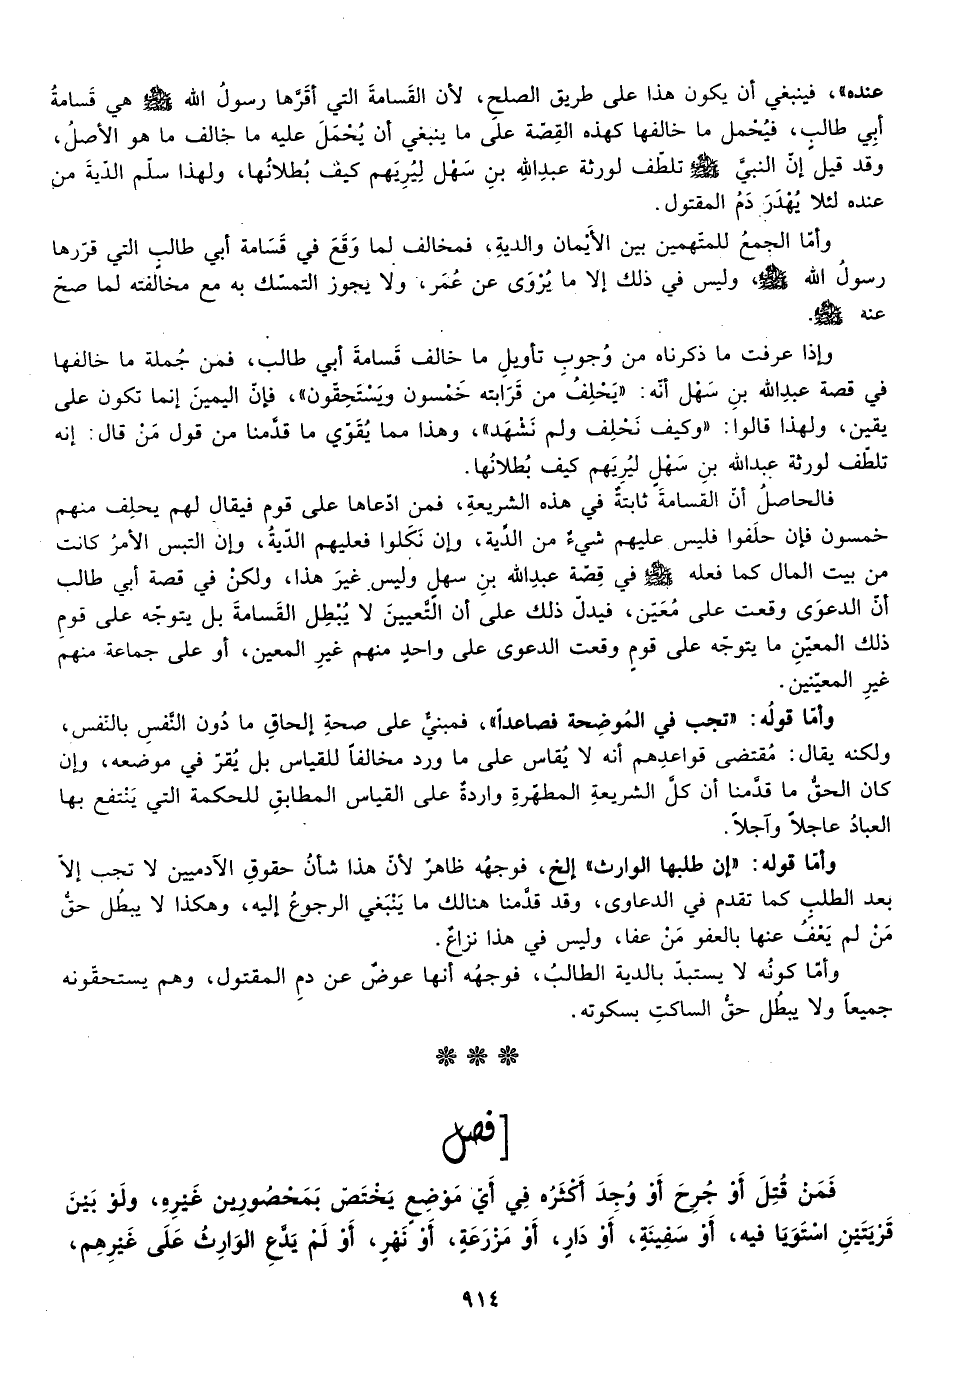 عنده»، فينبغي أن يكون هذا على طريق الصلح، لأن القَسامةَ التي أقَرَّها رسولُ الله ﷺ هي قَسامةُ
أبي طالبٍ، فيُحْمل ما خالفها كهذه القِصّة على ما ينبغي أن يُحْمَلَ عليه ما خالف ما هو الأصلُ،
وقد قيل إنّ النبيَّ ﷺ تلطّف لورثة عبدِاللهِ بنِ سَهْل لِيُرِيَهم كيف بُطلانُها، ولهذا سلّم الدّيةَ من
عنده لئلا يُهْدَرَ دَمُ المقتول.
وأمّا الجمعُ للمتهمين بين الأَيْمان والديةِ، فمخالف لما وَقَعَ في قَسَامة أبي طالبٍ التي قرّرها
رسولُ الله ﷺ، وليس في ذلك إلا ما يُرْوَى عن عُمَر، ولا يجوز التمسّك به مع مخالفته لما صحّ
عنه ﷺ.
وإذا عرفت ما ذكرناه من وُجوبِ تأويلِ ما خالف قَسامةَ أبي طالب، فمن جُملة ما خالفها
في قصة عبدِالله بنِ سَهْل أنّه: «يَحْلِفُ من قَرَابته خَمْسون ويَسْتَحِقّون»، فإنّ اليمينَ إنما تكون على
يقين، ولهذا قالوا: «وكيف نَحْلِف ولم نَشْهَد»، وهذا مما يُقَوّي ما قدَّمنا من قول مَنْ قال: إنه
تلطّف لورثة عبدالله بنِ سَهْلٍ ليُرِيَهم كيف بُطلانُها.
فالحاصلُ أنّ القسامةَ ثابتةٌ في هذه الشريعةِ، فمن ادّعاها على قوم فيقال لهم يحلِف منهم
خمسون فإن حلَفوا فليس عليهم شيءٌ من الدِّية، وإن نَكَلوا فعليهم الدّيةُ، وإن التبس الأمرُ كانت
من بيت المال كما فعله ﷺ في قِصّة عبدِالله بنِ سهلٍ وليس غيرَ هذا، ولكنْ في قصة أبي طالب
أنّ الدعوَى وقعت على مُعَيّن، فيدلّ ذلك على أن التَّعيينَ لا يُبْطِل القَسامةَ بل يتوجّه على قومِ
ذلك المعيّنِ ما يتوجّه على قومٍ وقعت الدعوى على واحدٍ منهم غيرِ المعين، أو على جماعة منهم
غيرِ المعيّنين.
وأمّا قولُه: «تجب في المُوضِحة فصاعداً»، فمبنيٌّ على صحةِ إلحاقِ ما دُون النَّفسِ بالنّفس،
ولكنه يقال: مُقتضى قواعدِهم أنه لا يُقاس على ما ورد مخالفاً للقياس بل يُقرّ في موضعه، وإن
كان الحقُّ ما قدَّمنا أن كلَّ الشريعةِ المطهّرةِ واردةٌ على القياس المطابقِ للحكمة التي يَنْتفع بها
العبادُ عاجلاً وآجلاً.
وأمّا قوله: «إن طلبها الوارث» إلخ، فوجهُه ظاهرٌ لأنّ هذا شأنُ حقوقِ الآدميين لا تجب إلاّ
بعد الطلبِ كما تقدم في الدعاوى، وقد قدَّمنا هنالك ما يَنْبَغي الرجوعُ إليه، وهكذا لا يبطُل حقُّ
مَنْ لم يَعْفُ عنها بالعفو مَنْ عفا، وليس في هذا نزاعٌ.
وأمّا كونُه لا يستبدّ بالدية الطالبُ، فوجهُه أنها عوضٌ عن دمِ المقتول، وهم يستحقّونه
جميعاً ولا يبطُل حقُّ الساكتِ بسكوته.
[فصل
فَمَنْ قُتِلَ أَوْ جُرِحَ أَوْ وُجِدَ أَكْثَرُه فِي أَيّ مَوْضِعٍ يَخْتَصّ بمَحْصُورِين غَيْرِهِ، ولَوْ بَيْنَ
قَرْيَتَيْنِ اسْتَوَيَا فيه، أَوْ سَفِينَةٍ، أَوْ دَارٍ، أَوْ مَزْرَعَةٍ، أَوْ نَهْرٍ، أَوْ لَمْ يَدَّعِ الوَارِثُ عَلَى غَيْرِهِم،
٩١٤